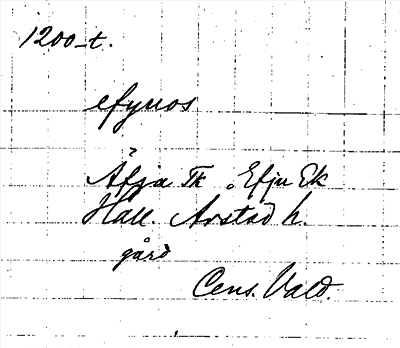 1200-t.
efyuos
Äfja Tk, Efju Ek
Hall. Arstad h.
gård
Cens. Vald.